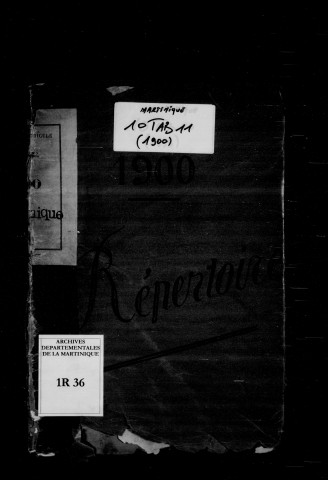 MARTINIQUE
10TAB11
(1900)
1900
nique
Répertoire
ARCHIVES
DEPARTEMENTALES
DE LA MARTINIQUE
1R 36